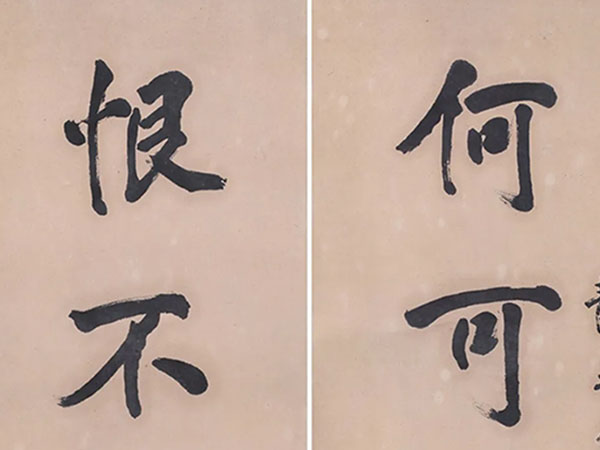 何可
恨不